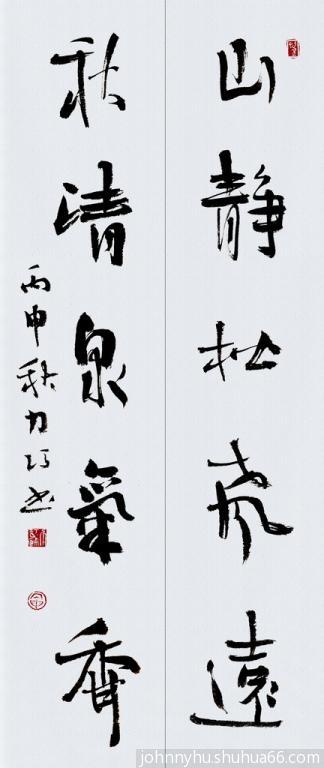 山静松声遠
秋清泉氣香
丙申秋力巧书
johnnyhu.shuhua66.com